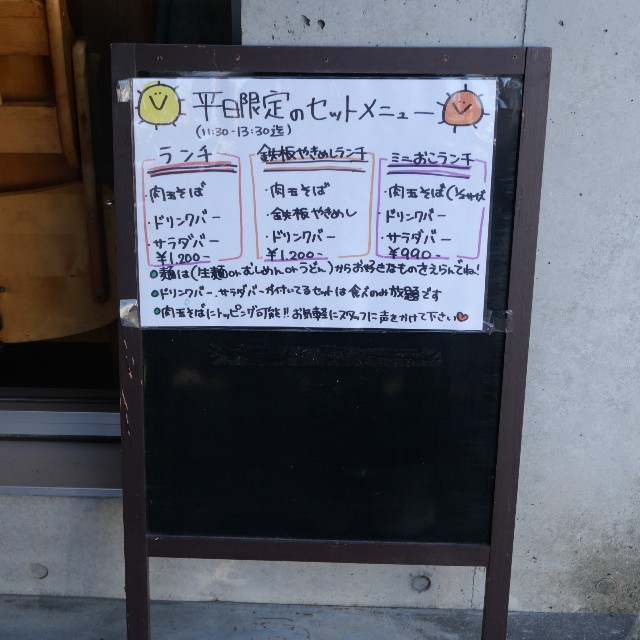 平日限定のセットメニュー
(11:30-13:30迄)
ランチ
・肉玉そば
・ドリンクバー
・サラダバー
¥1,200-
鉄板やきめしランチ
・肉玉そば
・鉄板やきめし
・ドリンクバー
¥1,200-
ミニおこランチ
・肉玉そば(1/2サイズ
・ドリンクバー
・サラダバー
¥990-
●麺は(生麺orむしめんorうどん)からお好きなものをえらんでね!
●ドリンクバー、サラダバーが付いてるセットは食べのみ放題です
●肉玉そばにトッピング可能!!お気軽にスタッフに声をかけて下さい